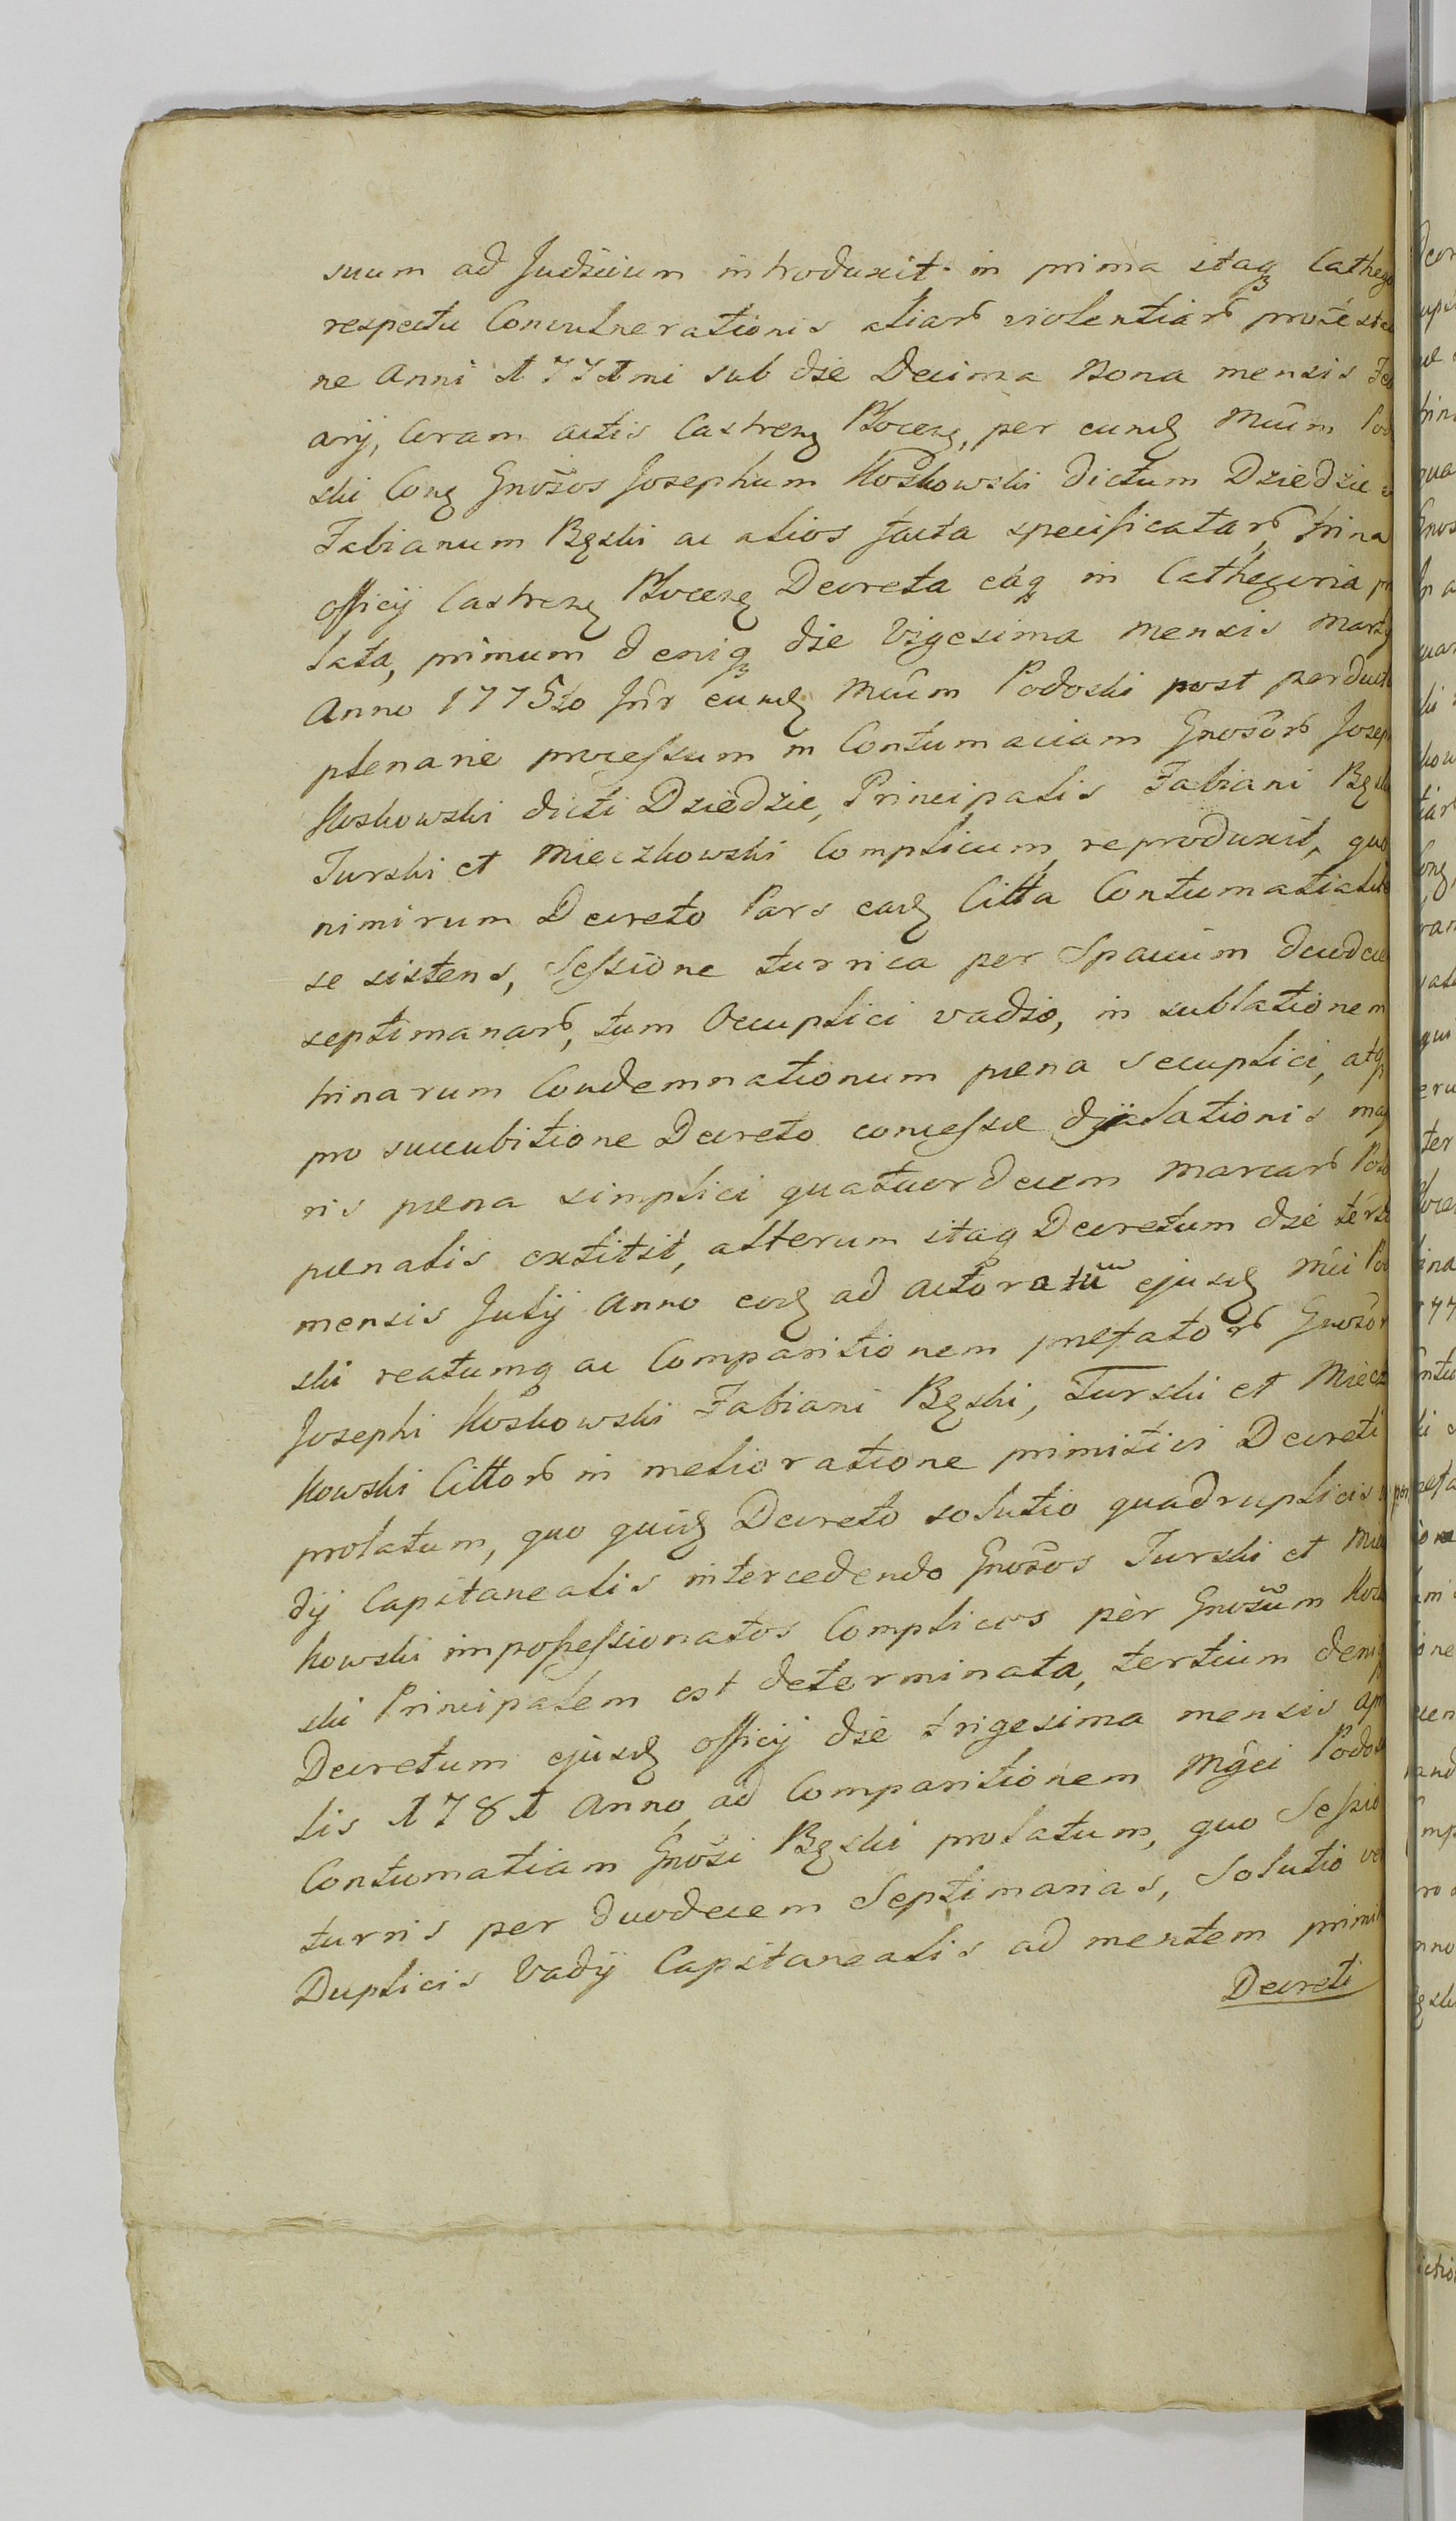 suum ad Judicium introduxit. in prima itaq Cathego
respectu Convulnerationis aliar violentiar protesta
ne Anni 1771mi sub die Decima Nona mensis Feb
arij, Coram actis Castrens Plocens, per eund Mcum Pod
ski Cons Gnosos Josephum Koskowski dictum Dziedzic
Fabianum Bęski ac alios facta specificatar, trina
officij Castrens Plocens Decreta eaq in Cathegoria pr
lata, primum deniq die Vigesima mensis Martij
Anno 1775to Inr eund Mcum Podoski post perduct
plenarie processum in Contumaciam Gnosor Josep
Koskowski dicti Dziedzic, Principalis Fabiani Bęsk
Turski et Mieczkowski Complicum, reproduxit, quo
nimirum Decreto Pars ead Citta Contumatialite
se sistens, Sessione turrica per Spacium duodec
septimanar, tum Occuplici vadio, in sublationem
trinarum Condemnationum pena Secuplici, atq
pro succubitione Decreto concessæ dijudicationis maj
ris pæna simplici quatuordecem Marcar Polo
pænalis extitit, alterum itaq Decretum die tertia
mensis Julij Anno eod ad actoratum ejusd Mci Pod
ski reatumq ac Comparitionem præfator Gnosor
Josephi Koskowski Fabiani Bęski, Turski et Miecz
kowski Cittor in melioratione primitivi Decreti
prolatum, quo quid Decreto solutio quadruplicis
dij Capitanealis intercedendo Gnosos Turski et Miecz
kowski impossessionatos Complices per Gnosum Kos
ski Principalem est determinata, tertium deniq
Decretum ejusd officij die trigesima mensis Apr
lis 1781 Anno, ad Comparitionem Mgci Podos
Contumatiam Gnosi Bęski prolatum, quo Sessio
turris per duodecem Septimanas, Solutio ve
Duplicis Vadij Capitanealis ad mentem primit
Decreti